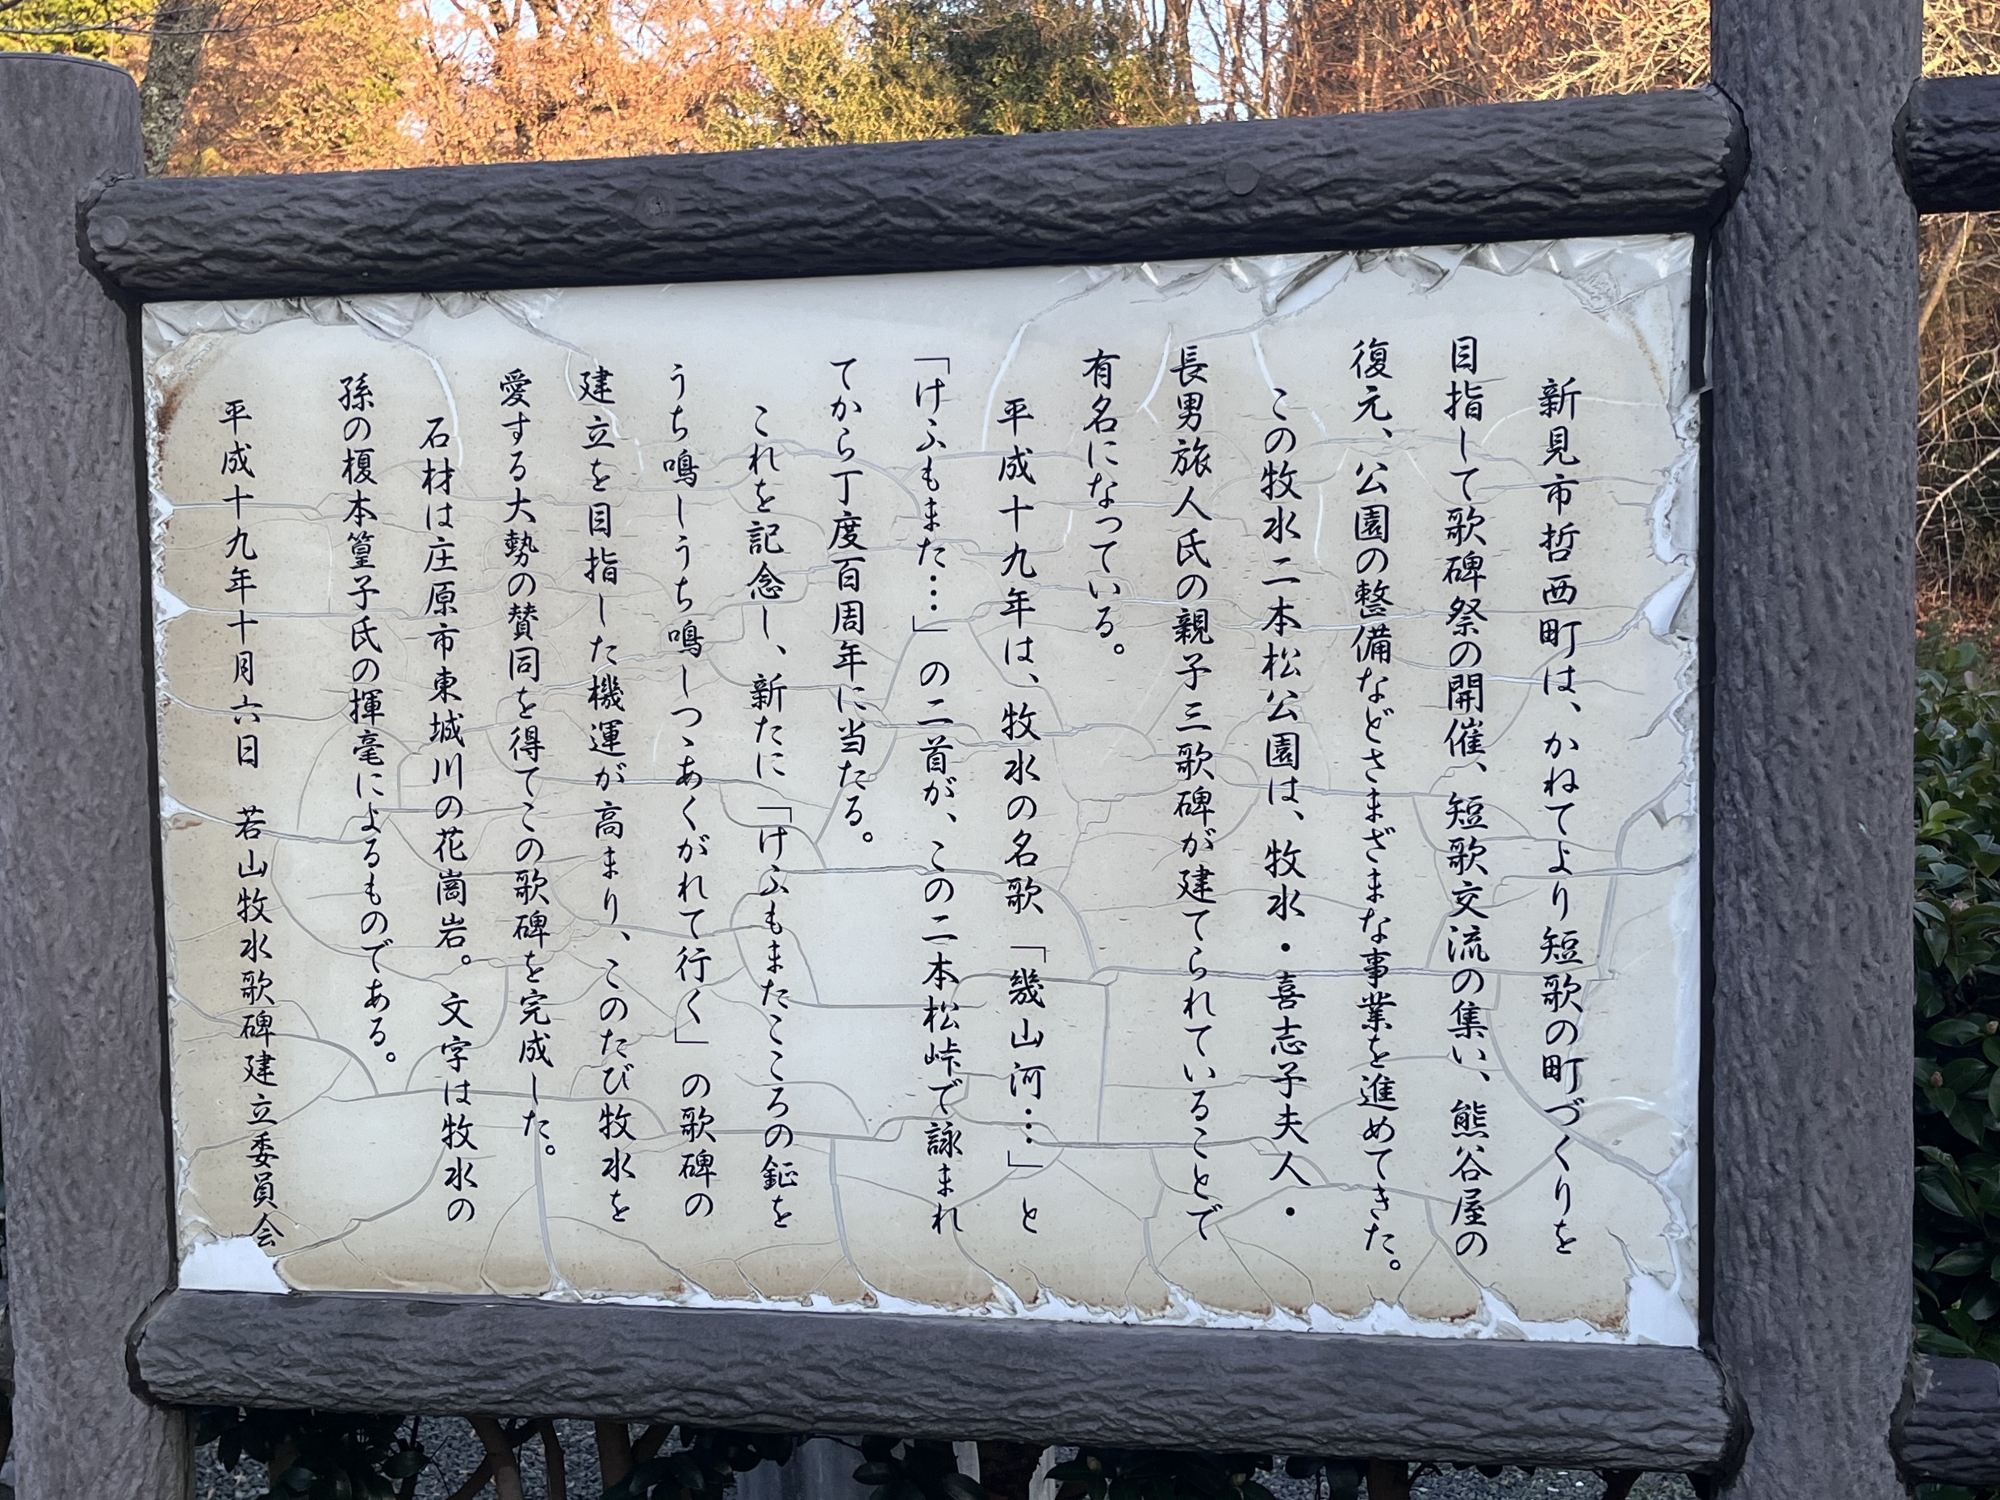 新見市哲西町は、かねてより短歌の町づくりを
目指して歌碑祭の開催、短歌交流の集い、熊谷屋の
復元、公園の整備などさまざまな事業を進めてきた。
この牧水二本松公園は、牧水・喜志子夫人・
長男旅人氏の親子三歌碑が建てられていることで
有名になっている。
平成十九年は、牧水の名歌「幾山河…」と
「けふもまた…」の二首が、この二本松峠で詠まれ
てから丁度百周年に当たる。
これを記念し、新たに「けふもまたこころの鉦を
うち鳴しうち鳴しつゝあくがれて行く」の歌碑の
建立を目指した機運が高まり、このたび牧水を
愛する大勢の賛同を得てこの歌碑を完成した。
石材は庄原市東城川の花崗岩。文字は牧水の
孫の榎本篁子氏の揮毫によるものである。
平成十九年十月六日 若山牧水歌碑建立委員会